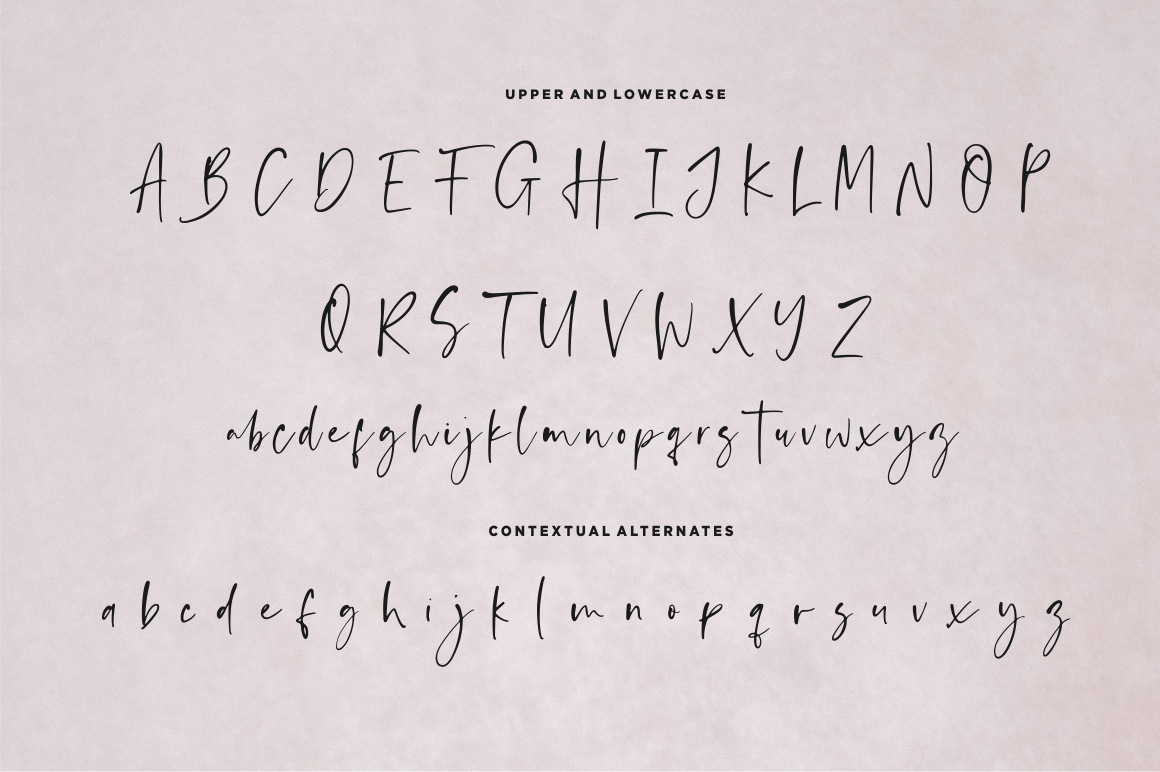 UPPER AND LOWERCASE
A B C D E F G H I J K L M N O P
Q R S T U V W X Y Z
a b c d e f g h i j k l m n o p q r s t u v w x y z
CONTEXTUAL ALTERNATES
a b c d e f g h i j k l m n o p q r s u v x y z